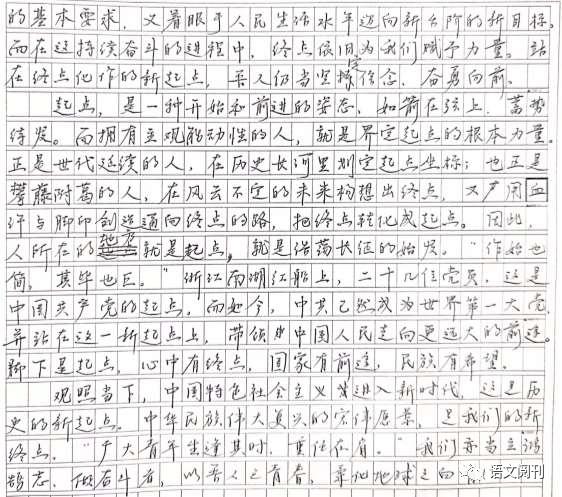 的基本要求，又着眼于人民生活水平迈向新台阶的新目标。
而在这持续奋斗的进程中，终点依旧为我们赋予力量。站
在终点化作的新起点，吾人仍当坚定信念，奋勇向前。
起点，是一种开始和前进的姿态，如箭在弦上，蓄势
待发。而拥有主观能动性的人，就是界定起点的根本力量。
正是世代延续的人，在历史长河里划定起点坐标；也正是
攀藤附葛的人，在风云不定的未来构想出终点，又广用血
汗与脚印创造通向终点的路，把终点转化成起点。因此，
人所在的地方就是起点，就是浩荡长征的始发。“作始也
简，其毕也巨。”浙江南湖红船上，二十几位党员，这是
中国共产党的起点。而如今，中共已然成为世界第一大党，
并站在这一新起点上，带领中国人民走向更远大的前途。
脚下是起点，心中有终点，国家有前途，民族有希望。
观照当下，中国特色社会主义进入新时代，这是历
史的新起点。中华民族伟大复兴的宏伟愿景，是我们的新
终点。“广大青年生逢其时，重任在肩。”我们亦当立鸿
鹄志，做奋斗者，以吾人之青春，乘化地球之向
语文阅刊